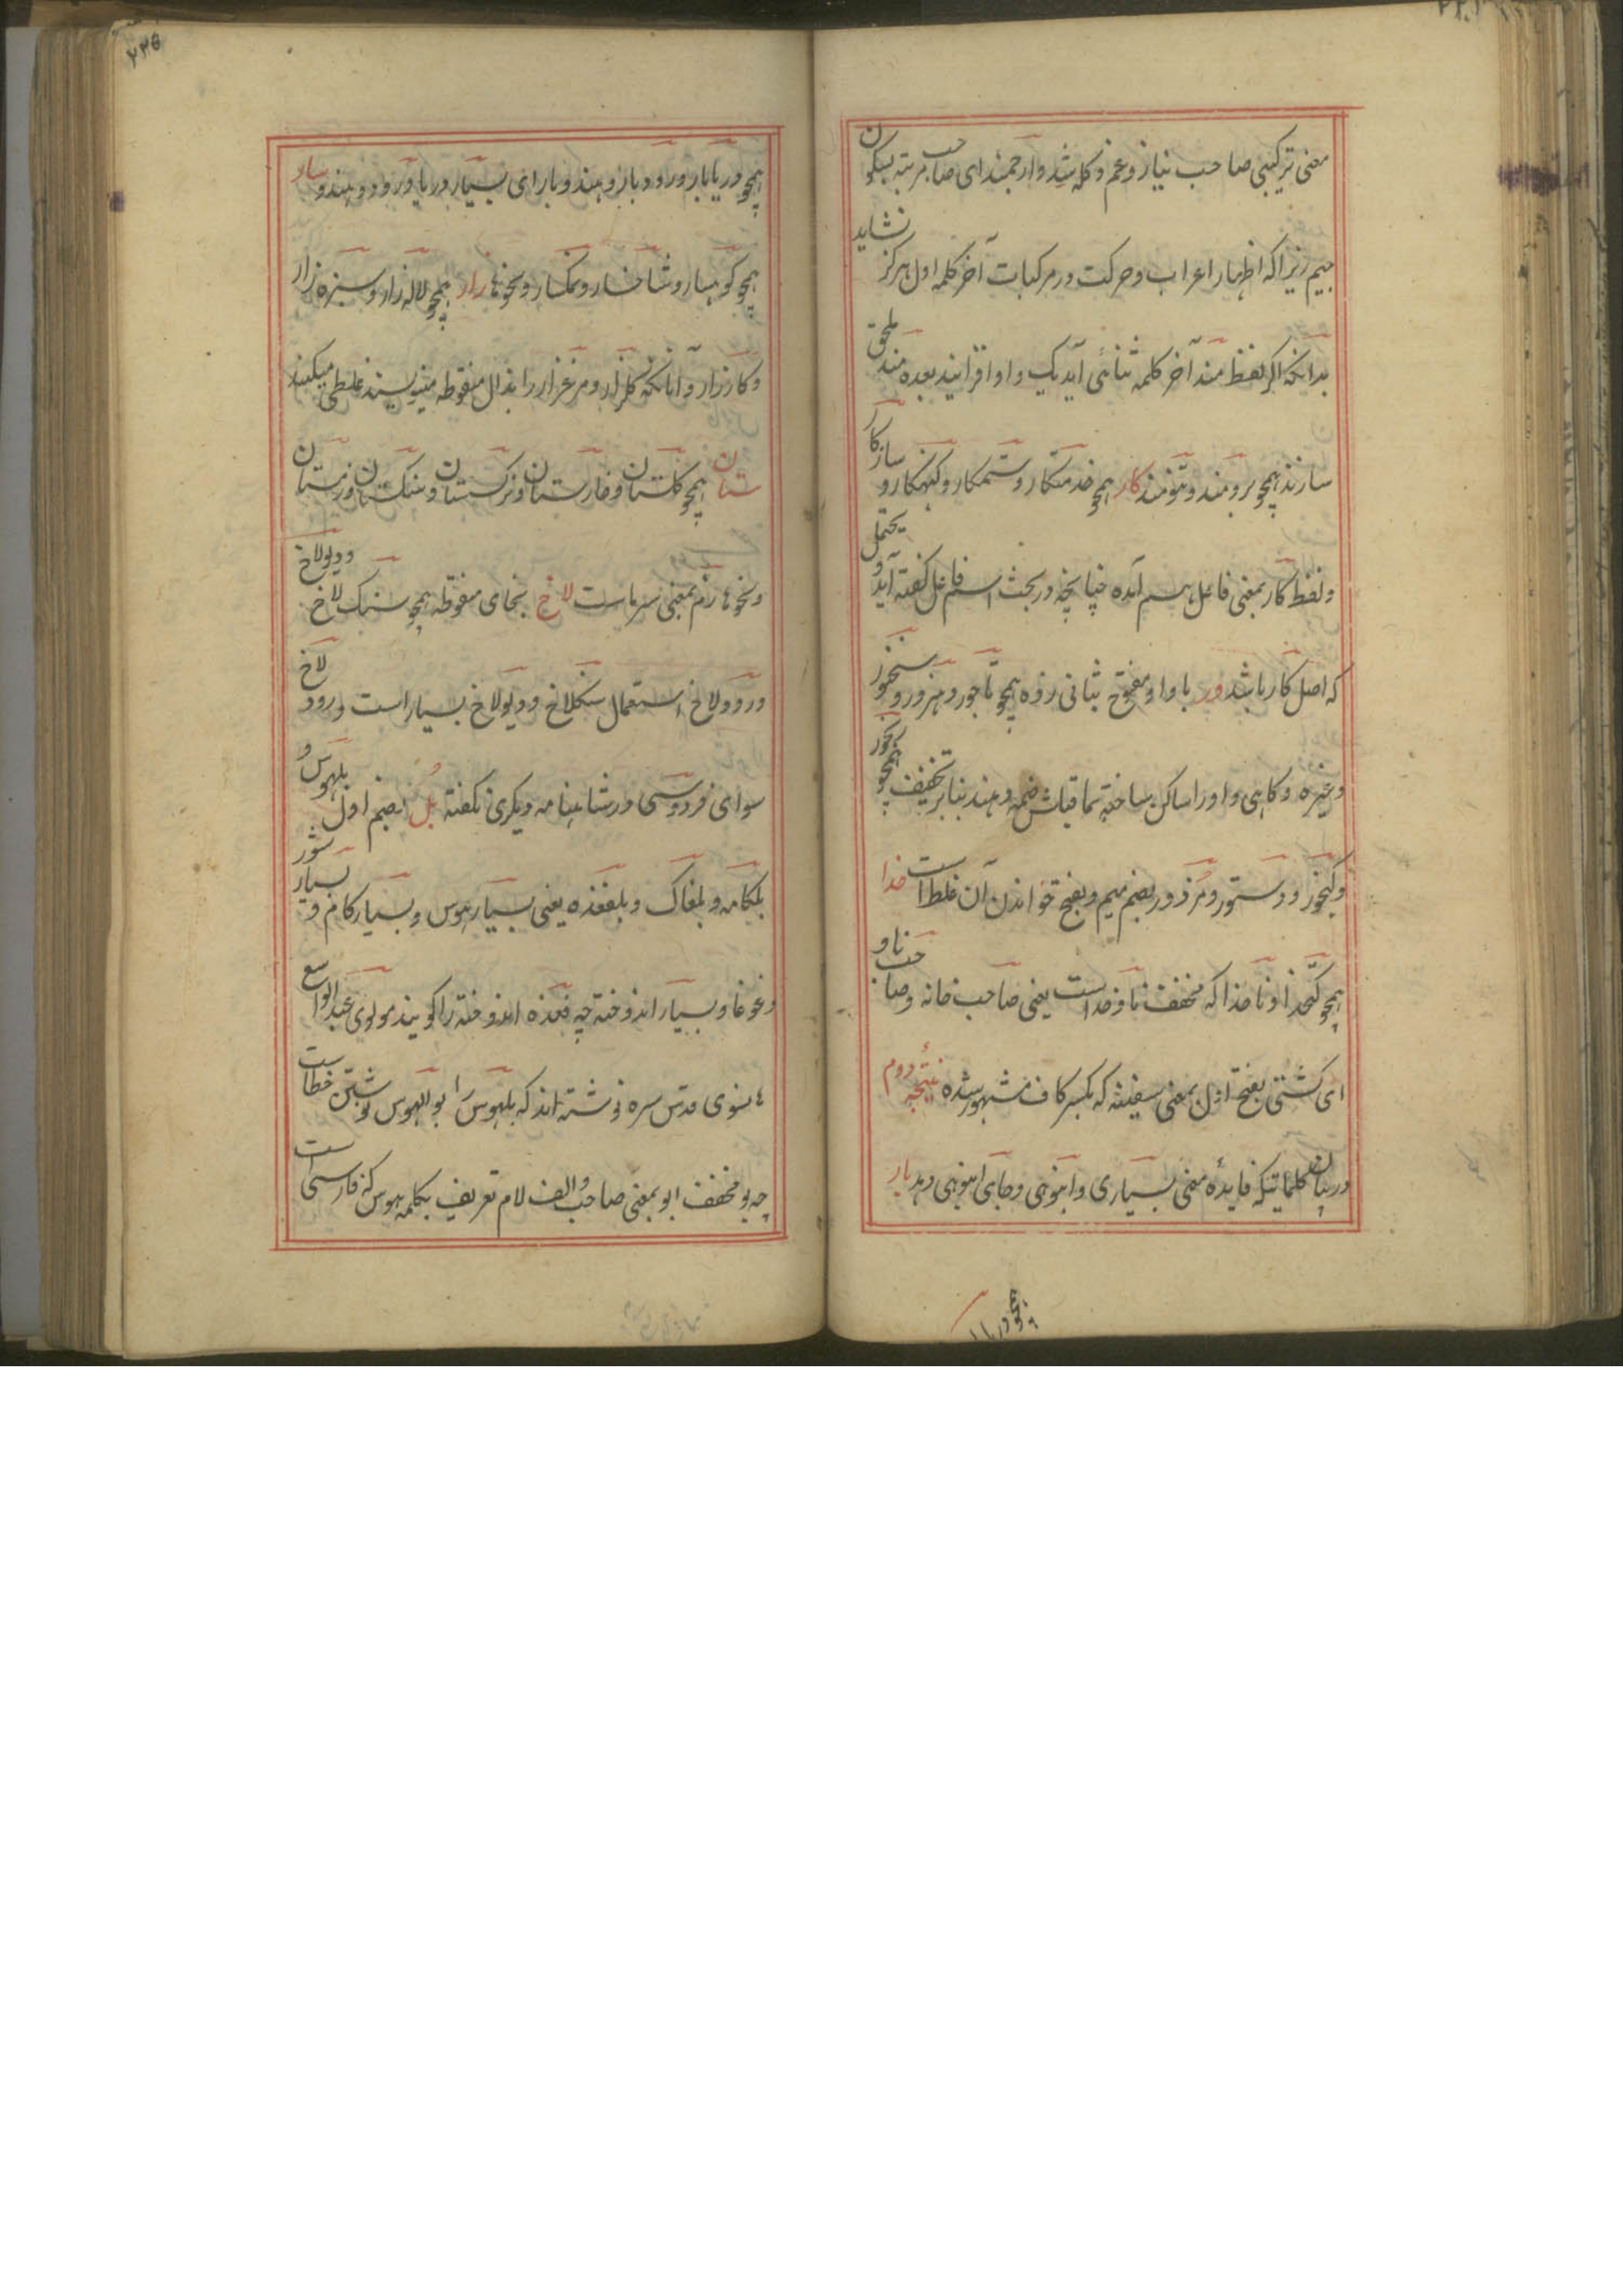 معنی ترکیبی صاحب نیاز و غم و کله شد و ارجمند ای صاحب مرتبه بسکون
جیم زیراکه اظهار اعراب و حرکت در مرکبات آخر کلمه اول هرکز نشاید
بدانکه اکر لفظ مند آخر کلمه ثنائی آید یک واو افزانید بعده مند ملحق
سازند همچو برومند و تنومند کار همچو خدمتکار و ستمکار و کنهکار و سازکا
و لفظ کار بمعنی فاعل هم آمده چنانچه در بحث اسم فاعل کفته آید و یحتمل
که اصل کار باشد ور با واو مفتوح بثانی زده همچو تاجور و هنرور و سخنور
وغیره و کاهی واو را ساکن ساخته ماقبلش ضمه دهند بنا بر تخفیف همچو رنجور
و کنجور و دستور و مزدور بضم میم و بفتح خواندن آن غلط است خدا
همچو کتخدا و ناخدا که مخفف ناوخداست یعنی صاحب خانه و صاحب ناو
ای کشتی بفتح اول بمعنی سفینه که بکسر کاف مشهور شده نتیجه دوم
در بیان کلماتیکه فایده معنی بسیاری و انبوهی و جای انبوهی دهد بار
همچو دریا
۲۳۵
همچو دریابار و رودبار و هندوبار ای بسیار دریا و رود و هندو سار
همچو کوهسار و شاخسار و نمکسار و نحوها زار همچو لاله زار و سبزه زار
و کارزار و آنانکه کلزار و مرغزار را بذال منقوطه مینویسند غلط میکنند
ستان همچو کلستان و خارستان و نرکستان و سنکستان و زمستان
و نحوها زم بمعنی سرماست لاخ بخای منقوطه همچو سنک لاخ و دیولاخ
و رودلاخ استعمال سنکلاخ و دیولاخ بسیار است و رود لاخ
سوای فردوسی در شاهنامه دیکری نکفته بل بضم اول بلهوس و
بلکامه و بلغاک و بلفغده یعنی بسیار هوس و بسیار کام و بسیار شور
و غوغا و بسیار اندوخته چه فغده اندوخته را کویند مولوی عبد الواسع
هانسوی قدس سره نوشته اند که بلهوس را بو الهوس نوشتن خطاست
چه بو مخفف ابو بمعنی صاحب و الف لام تعریف بکلمه هوس که فارسی است